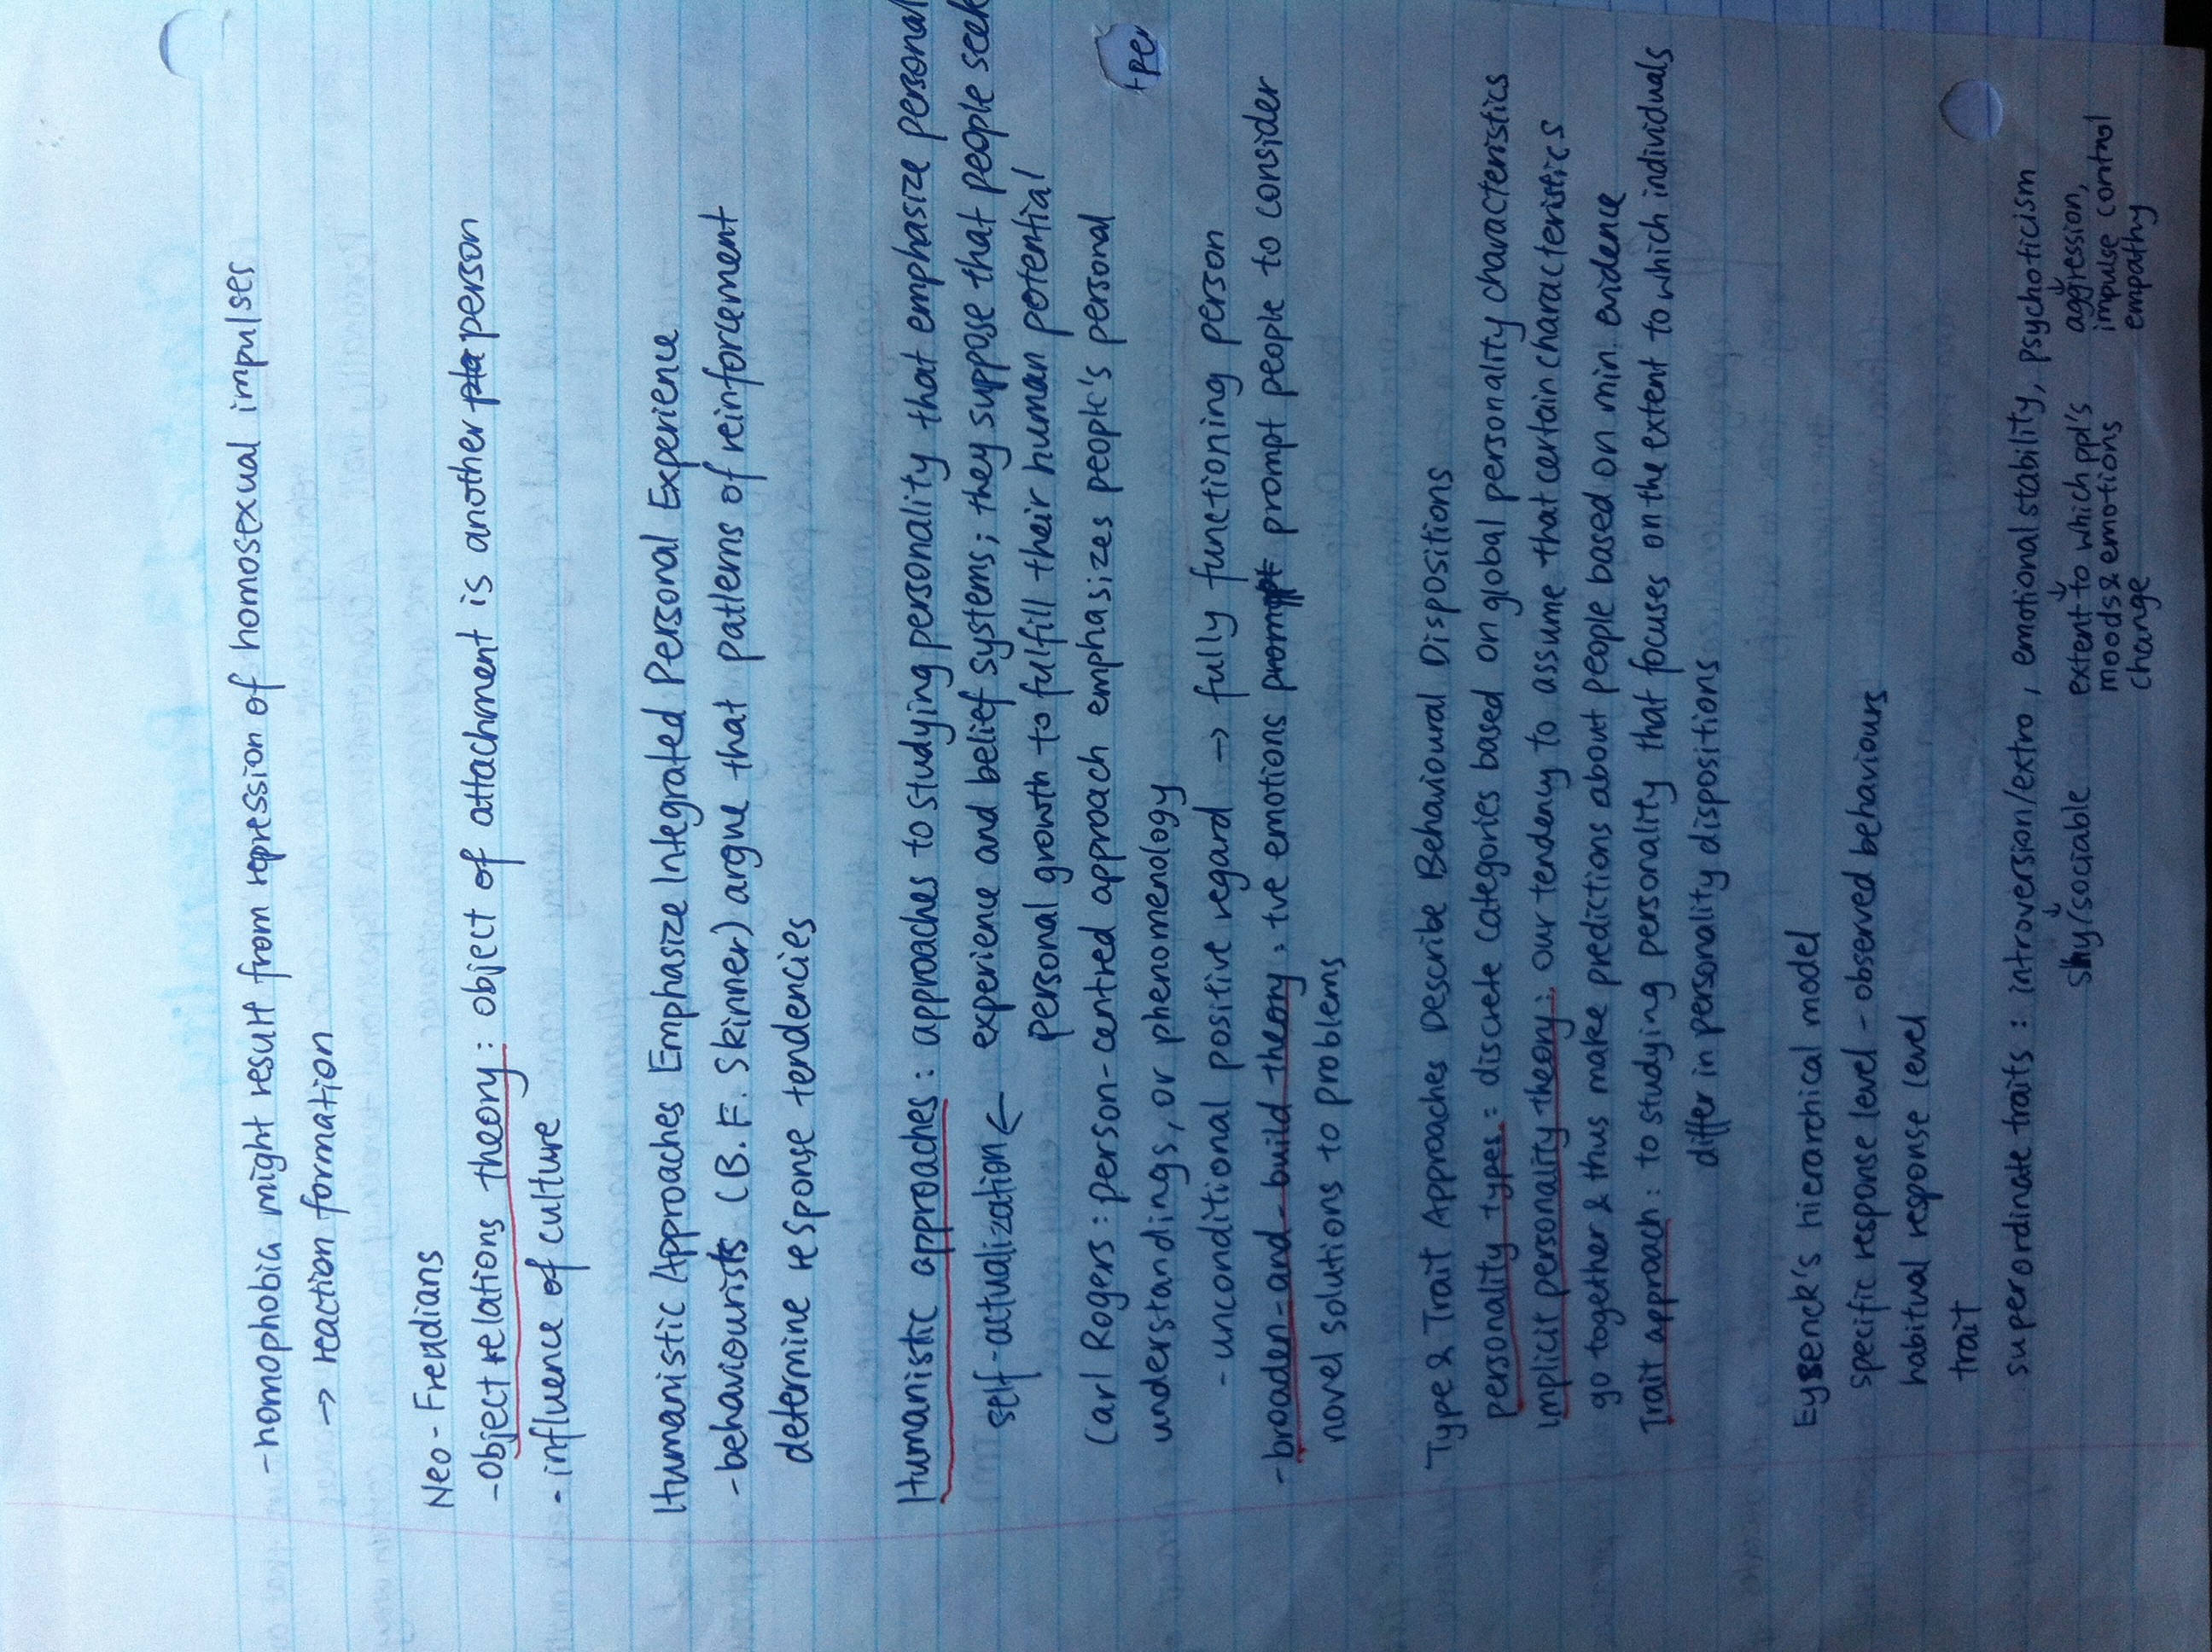 - homophobia might result from repression of homosexual impulses
→ reaction formation
Neo-Freudians
- Object relations theory: object of attachment is another person
- influence of culture
Humanistic Approaches Emphasize Integrated Personal Experience
- behaviourists (B.F. Skinner) argue that patterns of reinforcement
determine response tendencies
Humanistic approaches: approaches to studying personality that emphasize personal
self-actualization ← experience and belief systems; they suppose that people seek
personal growth to fulfill their human potential
Carl Rogers: person-centred approach emphasizes people's personal
understandings, or phenomenology
- unconditional positive regard → fully functioning person
- broaden-and-build theory: +ve emotions prompt people to consider
novel solutions to problems
Type & Trait Approaches Describe Behavioural Dispositions
personality types: discrete categories based on global personality characteristics
Implicit personality theory: our tendency to assume that certain characteristics
go together & thus make predictions about people based on min. evidence
Trait approach: to studying personality that focuses on the extent to which individuals
differ in personality dispositions
Eysenck's hierarchical model
specific response level - observed behaviours
habitual response level
trait
superordinate traits: introversion/extro, emotional stability, psychoticism
↓ ↓ ↓
shy/sociable extent to which ppl's aggression,
moods & emotions impulse control
change empathy